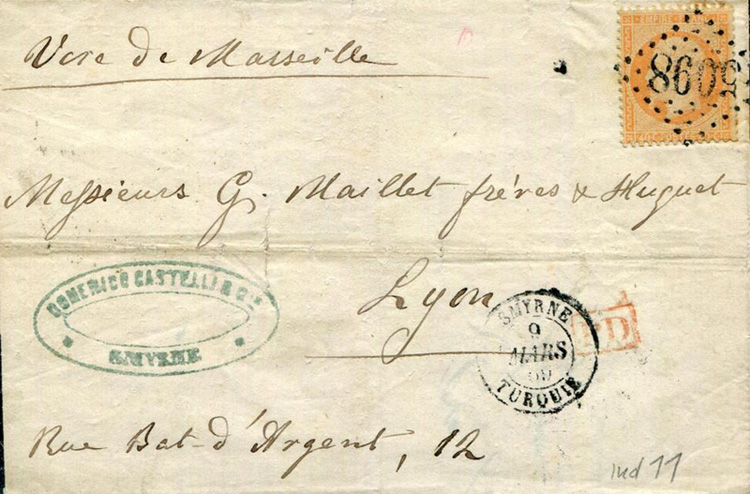 Voie de Marseille
EMPIRE
5098
Messieurs G. Maillet frères & Huguet
Lyon
DOMENICO CASTELLI & Cie
SMYRNE
SMYRNE
9
MARS
TURQUIE
P.D.
Rue Bat-d'Argent, 12
ind 11